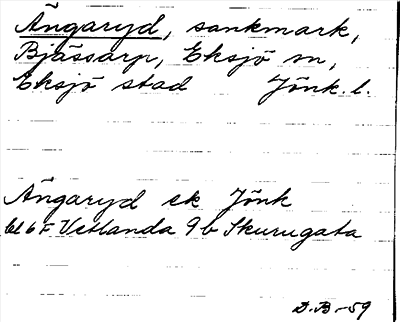 Ängaryd, sankmark,
Bjässarp, Eksjö m,
Eksjö stad Jönk.l.
Ängaryd ek Jönk
bl 6 F Vetlanda 9b Skurugata
D.B-59